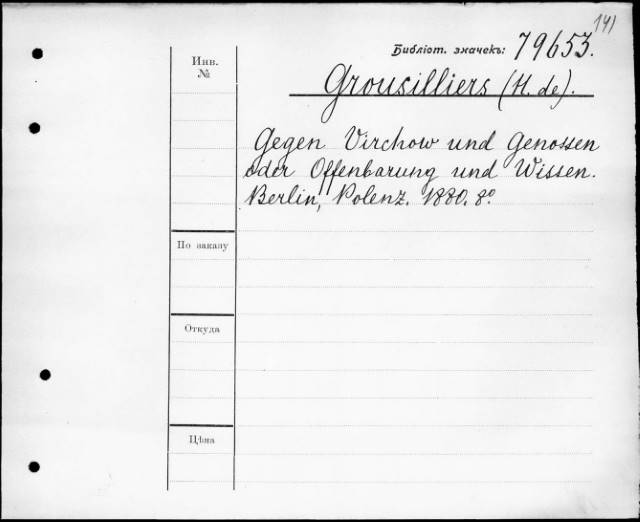 141
Библіот. значекъ: 79653.
Инв.
№
Grousilliers (H. de).
Gegen Virchow und Genossen
oder Offenbarung und Wissen.
Berlin, Polenz. 1880. 8°.
По заказу
Откуда
Цѣна